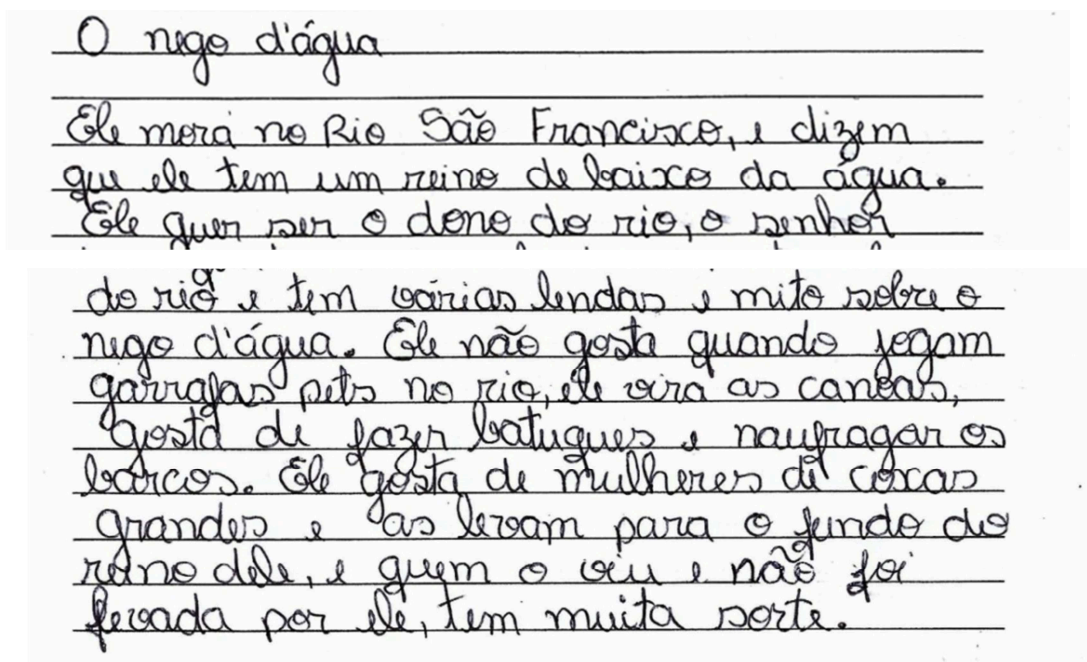 O nego d'água
Ele mora no Rio São Francisco, e dizem
que ele tem um reino de baixo da água.
Ele quer ser o dono do rio, o senhor
do rio e tem várias lendas e mito sobre o
nego d'água. Ele não gosta quando jogam
garrafas pets no rio, ele vira as canoas,
gosta de fazer batuques e naufragar os
barcos. Ele gosta de mulheres de coxas
grandes e as levam para o fundo do
reino dele, e quem o viu e não foi
levada por ele, tem muita sorte.